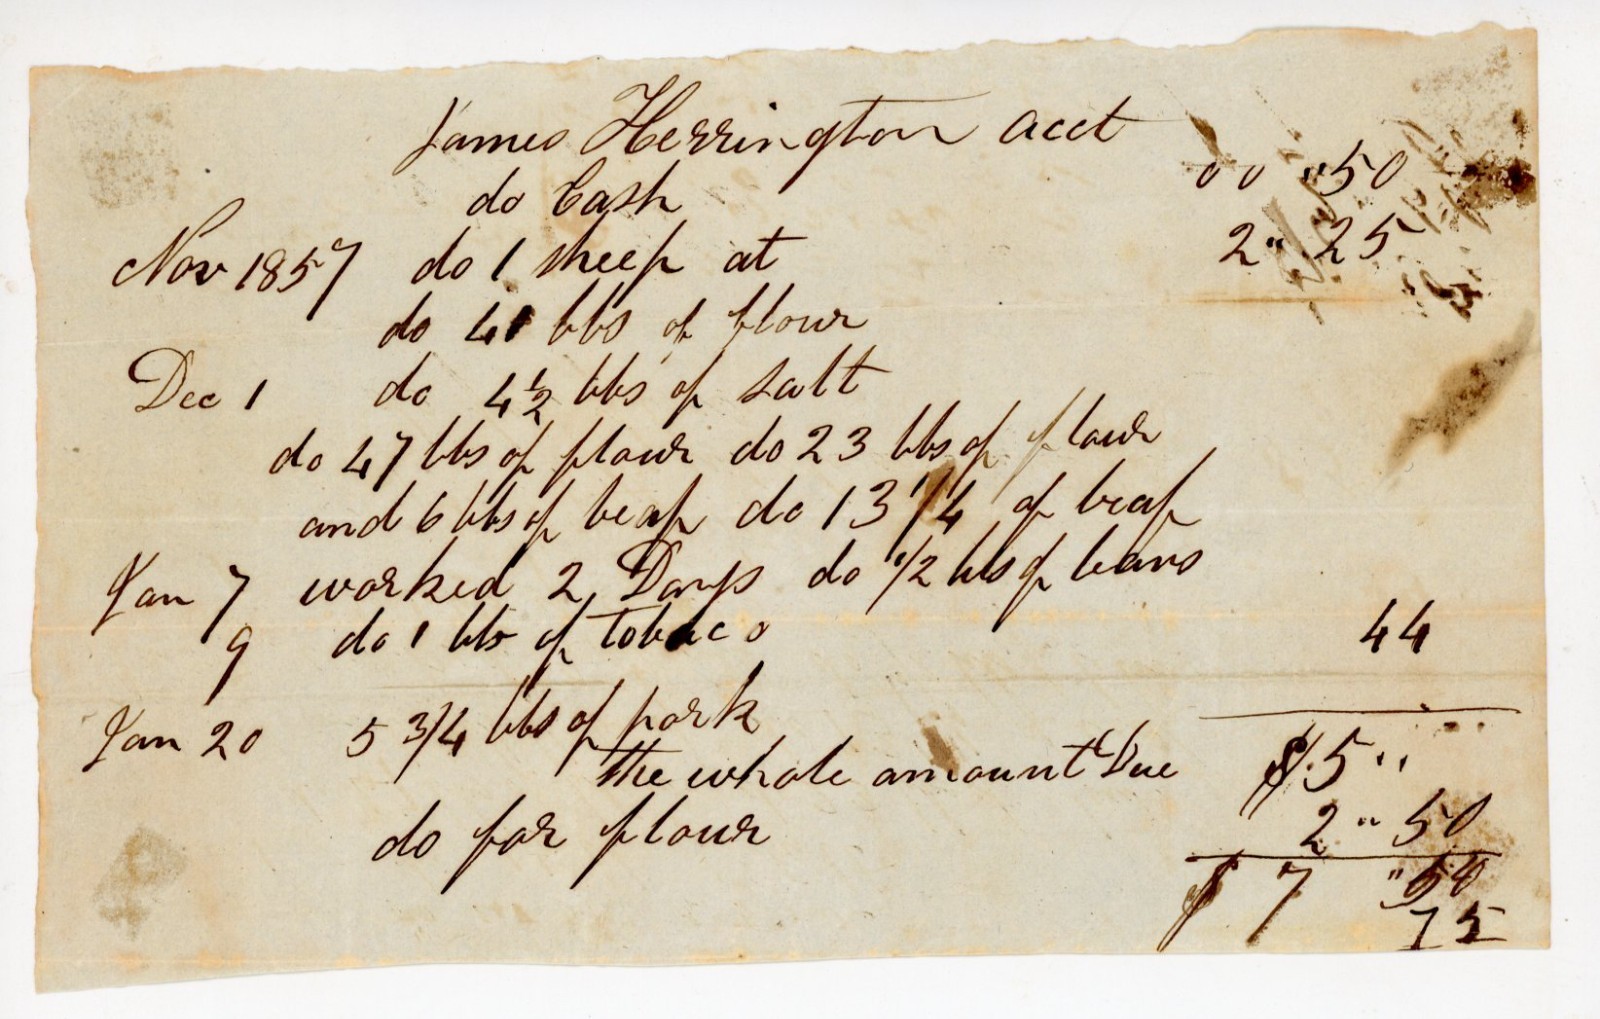 James Herrington acct
do Cash 00 " 50
Nov 1857 do 1 sheep at 2 " 25
do 41 lbs of flour
Dec 1 do 4 1/2 lbs of salt
do 47 lbs of flour do 23 lbs of flour
and 6 lbs of beaf do 13 1/4 of beaf
Jan 7 worked 2 Days do 1/2 lbs of beans
9 do 1 lbs of tobaco 44
Jan 20 5 3/4 lbs of pork
the whole amount Due $ 5 "
do for flour 2 " 50
$ 7 " 50
75